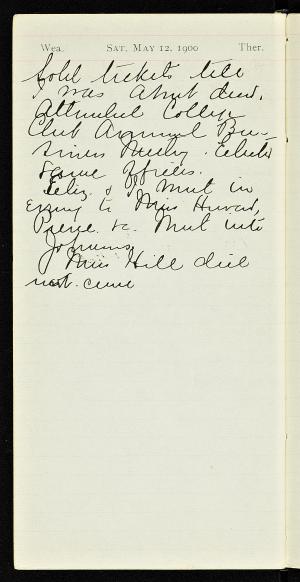 Wea. SAT. MAY 12, 1900 Ther.
Sold tickets till
I was about dead.
Attended College
Club Annual Bus-
iness Meeting. Elected
same officers.
Eliz. & I went in
evening to Miss Howard,
Pierce &c. Went into
Miss Hill did
not come